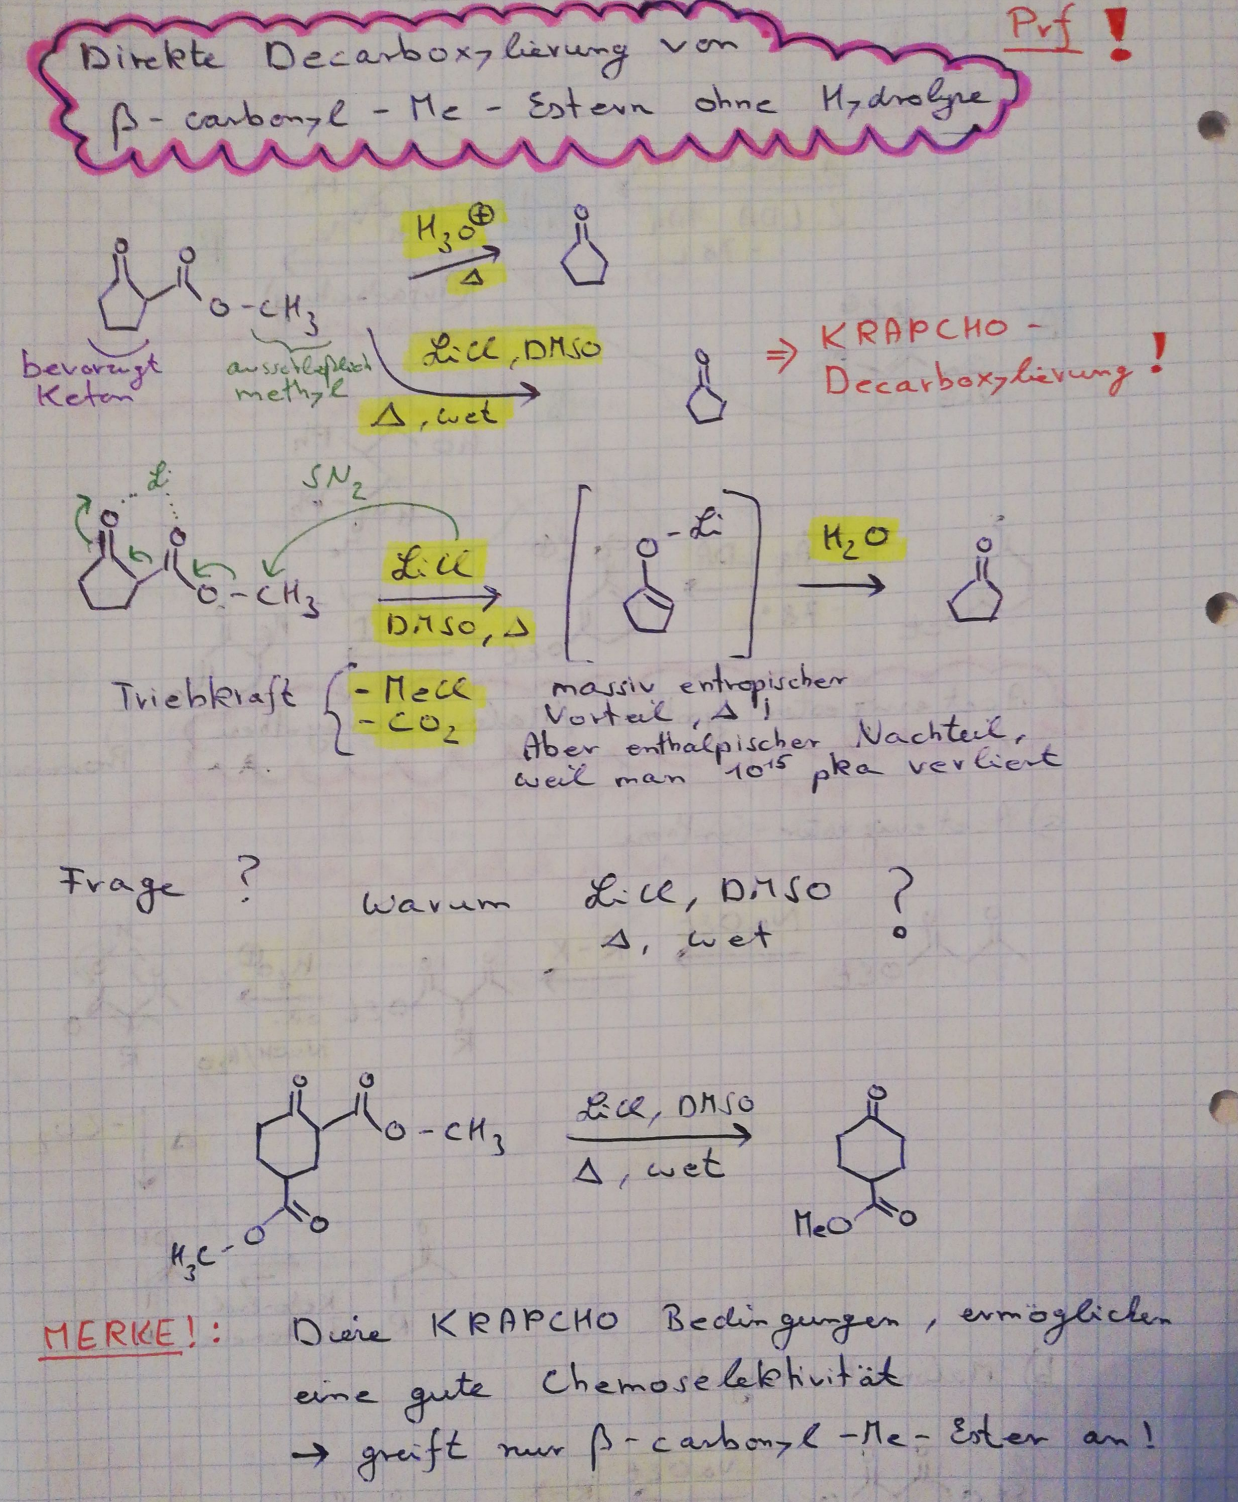 Prf !
Direkte Decarboxylierung von
β-carbonyl-Me-Estern ohne Hydrolyse
H₃O⊕
Δ
O
O
O
O-CH₃
bevorzugt
Keton
ausschließlich
methyl
LiCl, DMSO
Δ, wet
O
⇒ KRAPCHO-
Decarboxylierung!
Li
SN₂
O
O
O-CH₃
LiCl
DMSO, Δ
O-Li
H₂O
O
Triebkraft { - MeCl
- CO₂
massiv entropischer
Vorteil, Δ!
Aber enthalpischer Nachteil,
weil man 10¹⁵ pka verliert
Frage ?
Warum LiCl, DMSO ?
Δ, wet
O
O
O-CH₃
O
O
H₃C-
LiCl, DMSO
Δ, wet
O
MeO
O
MERKE!: Diese KRAPCHO Bedingungen, ermöglichen
eine gute Chemoselektivität
→ greift nur β-carbonyl-Me-Ester an!